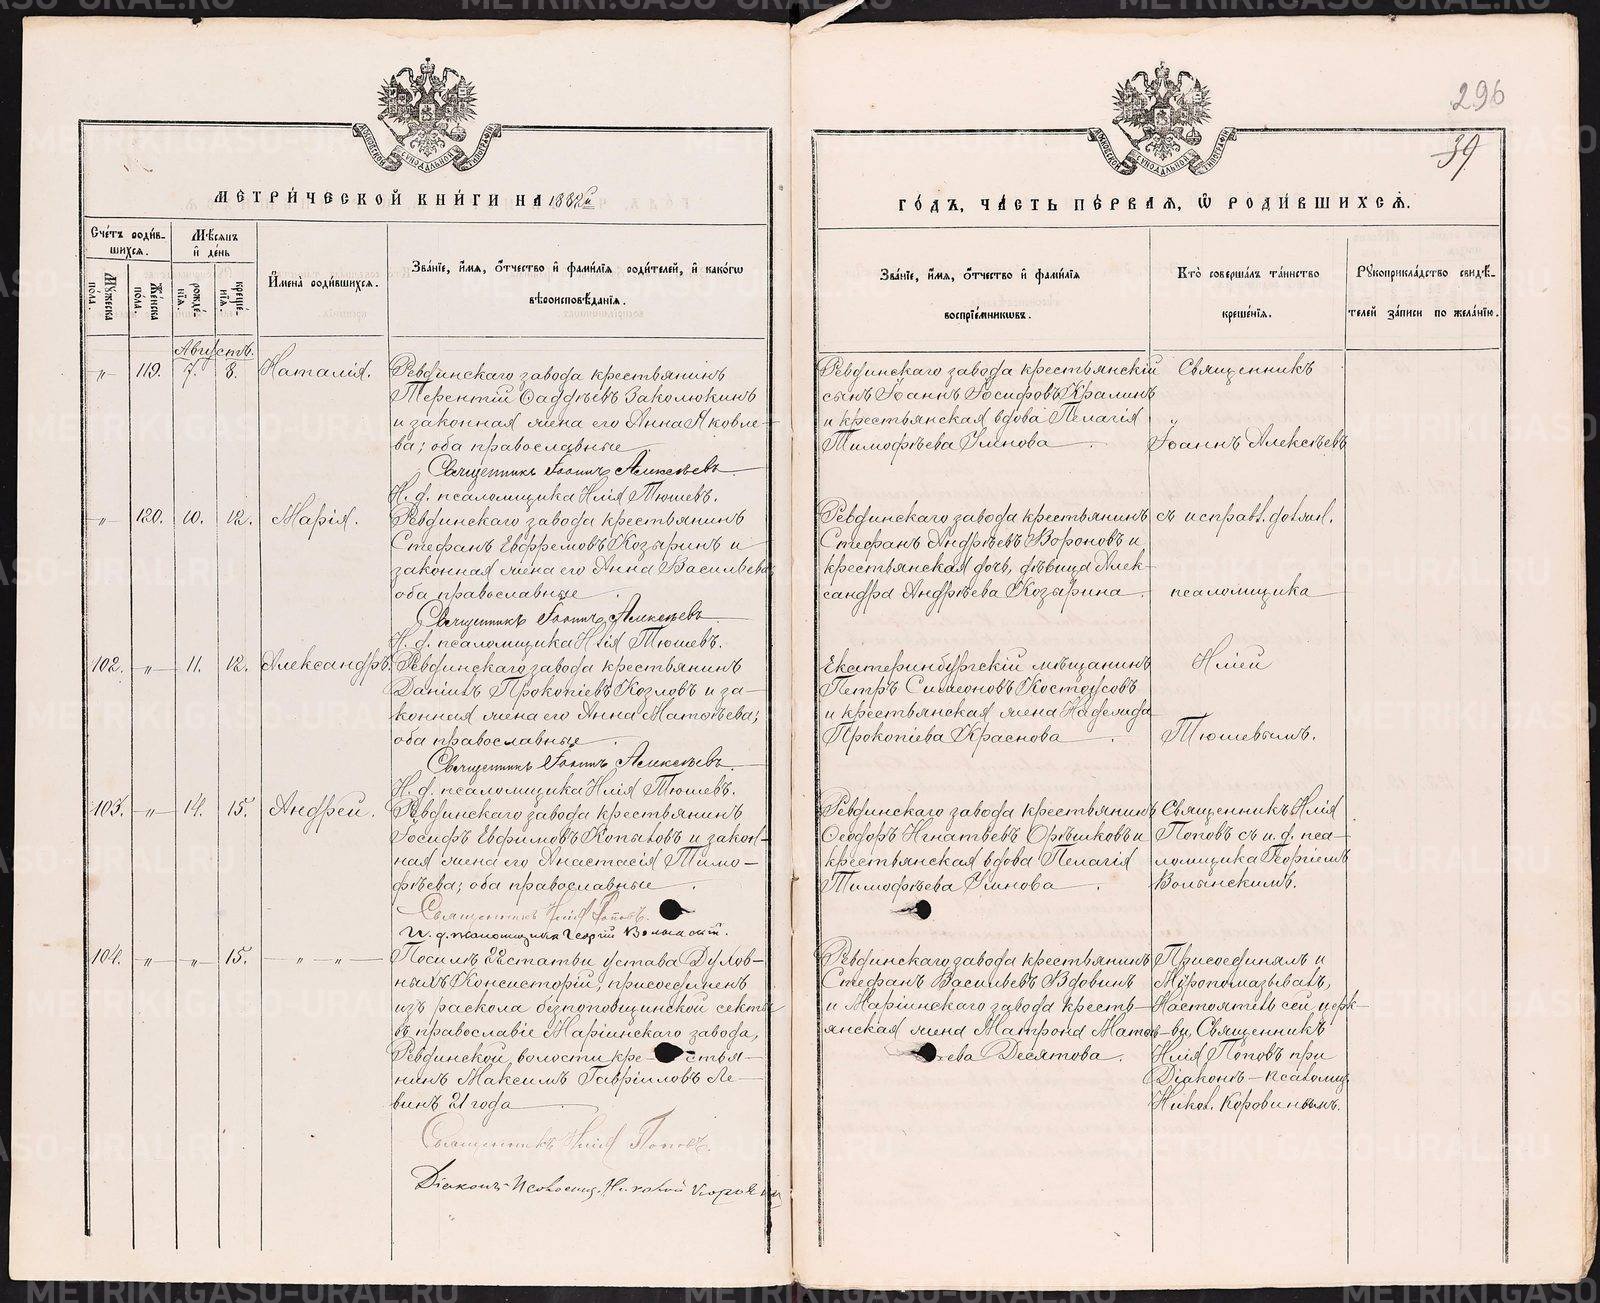 296
39
МЕТРИЧЕСКОЙ КНИГИ НА 1882й
ГОДЪ, ЧАСТЬ ПЕРВАЯ, Ѿ РОДИВШИХСЯ.
Счетъ родив-
шихся.
Мѣсяцъ
и день
Имена родившихся.
Званіе, имя, отчество и фамилія родителей, и какогѡ
вѣроисповѣданія.
Мужеска
пола.
Женска
пола.
рожде-
нія.
креще-
нія.
Званіе, имя, отчество и фамилія
воспріемниковъ.
Кто совершалъ таинство
крещенія.
Рукоприкладство свидѣ-
телей записи по желанію.
Августъ.
„ 119. 7. 8. Наталія.
Ревдинскаго завода крестьянинъ
Терентій Фаддѣевъ Заколюкинъ
и законная жена его Анна Яковле-
ва; оба православные
Священникъ Іоаннъ Алексѣевъ
И. д. псаломщика Илія Тюшевъ.
Ревдинскаго завода крестьянскій
сынъ Іоаннъ Іосифовъ Кралинъ
и крестьянская вдова Пелагія
Тимофѣева Умнова.
Священникъ
„
Іоаннъ Алексѣевъ
„ 120. 10. 12. Марія.
Ревдинскаго завода крестьянинъ
Стефанъ Евфремовъ Козыринъ и
законная жена его Анна Васильева
оба православные
Священникъ Іоаннъ Алексѣевъ
И. д. псаломщика Илія Тюшевъ.
Ревдинскаго завода крестьянинъ
Стефанъ Андрѣевъ Вороновъ и
крестьянская дочь, дѣвица Алек-
сандра Андрѣева Козырина.
съ исправл. должн.
псаломщика
102. „ 11. 12. Александръ.
Ревдинскаго завода крестьянинъ
Даніилъ Прокопіевъ Козловъ и за-
конная жена его Анна Матѳѣева;
оба православные.
Священникъ Іоаннъ Алексѣевъ
И. д. псаломщика Илія Тюшевъ.
Екатеринбургскій мѣщанинъ
Петръ Симеоновъ Костоусовъ
и крестьянская жена Надежда
Прокопіева Краснова.
Иліей
Тюшевымъ.
103. „ 14. 15. Андрей.
Ревдинскаго завода крестьянинъ
Іосифъ Евфимовъ Копыловъ и закон-
ная жена его Анастасія Тимо-
фѣева; оба православные.
Священникъ Илія Поповъ.
И. д. псаломщика Георгій Волынскій.
Ревдинскаго завода крестьянинъ
Ѳеодоръ Игнатьевъ Орѣшковъ и
крестьянская вдова Пелагія
Тимофѣева Умнова.
Священникъ Илія
Поповъ съ и. д. пса-
ломщика Георгіемъ
Волынскимъ.
104. „ „ 15. „ „
По силѣ 22 статьи устава Духов-
ныхъ Консисторій, присоединенъ
изъ раскола безпоповщинской секты
въ православіе Маріинскаго завода,
Ревдинской волости кре-стья-
нинъ Максимъ Гавріиловъ Ле-
винъ 21 года
Священникъ Илія Поповъ.
Діаконъ-псаломщ. Николай Коровинъ
Ревдинскаго завода крестьянинъ
Стефанъ Васильевъ Вдовинъ
и Маріинскаго завода кресть-
янская жена Матрона Матѳ-
ѣева Десятова.
Присоединялъ и
Мѵропомазывалъ,
Настоятель сей церк-
ви, Священникъ
Илія Поповъ при
Діаконѣ-псаломщ.
Никол. Коровинымъ.
METRIKI.GASO-URAL.RU